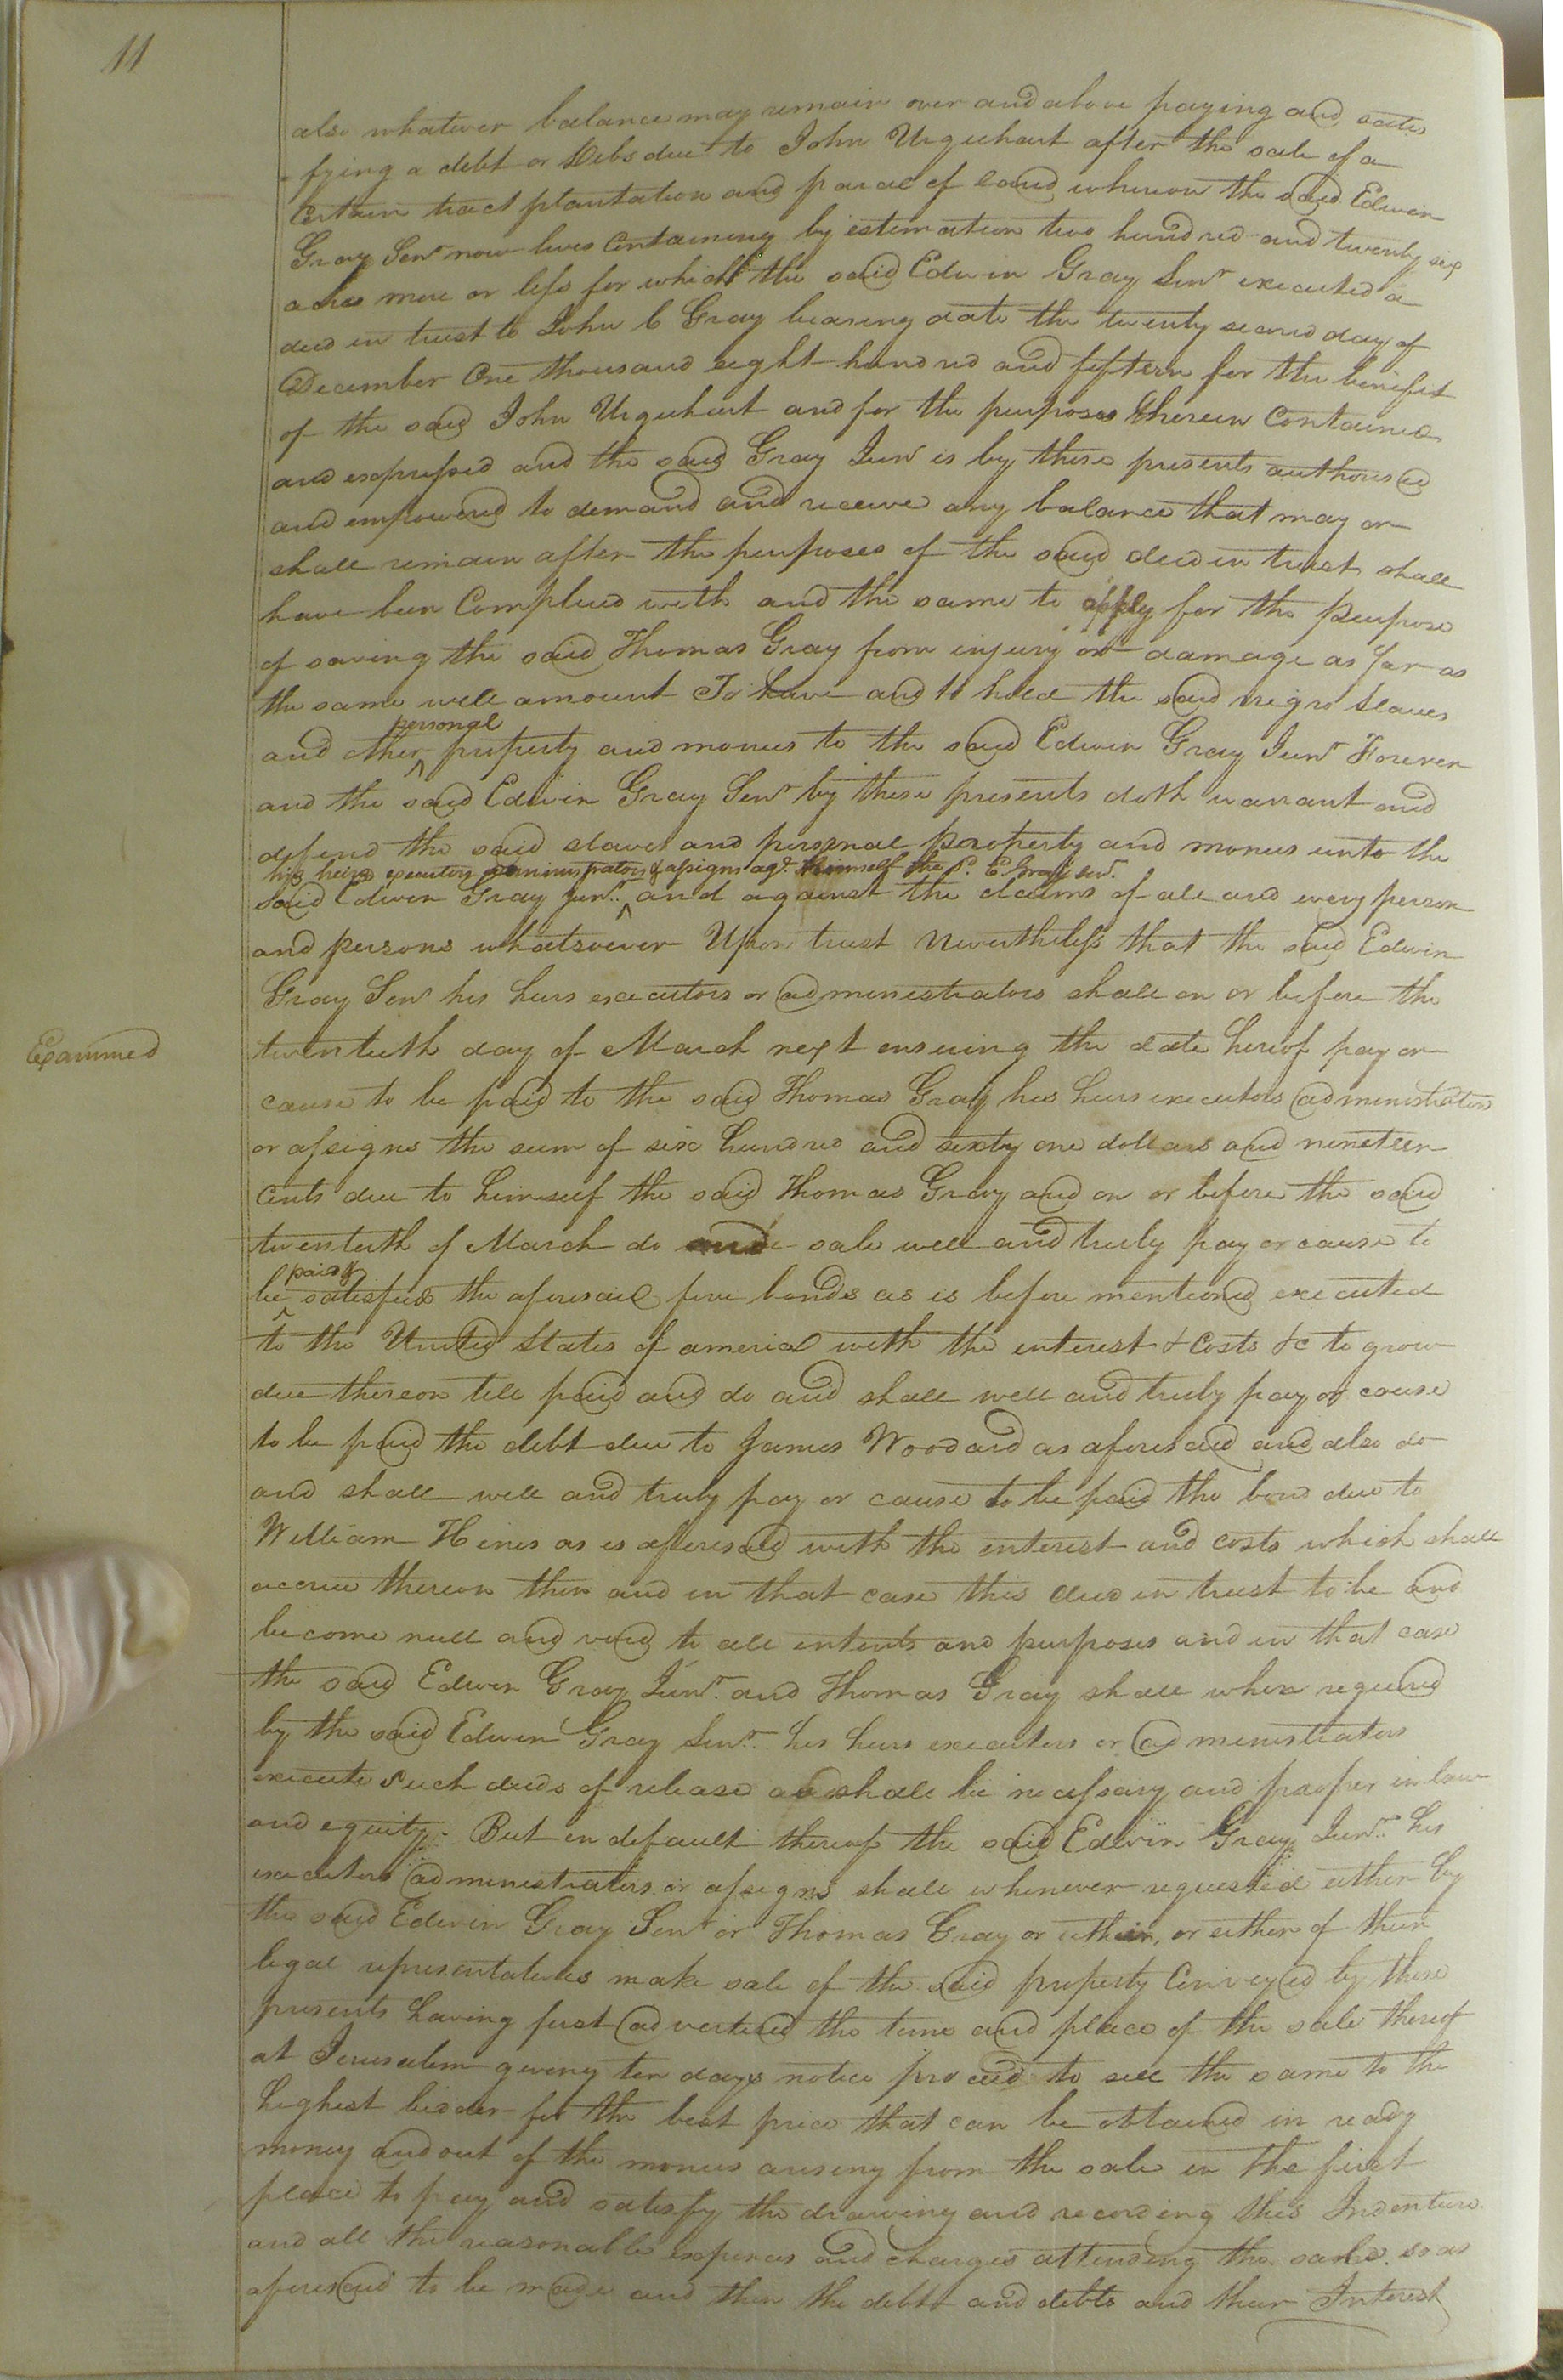 11
also whatever balance may remain over and above paying and satis
fying a debt or Debs due to John Urquhart after the sale of a
Certain tract plantation and parcel of land whereon the said Edwin
Gray Senr now lives Containing by estimation two hundred and twenty six
acres more or less for which the said Edwin Gray Senr executed a
deed in trust to John C Gray bearing date the twenty second day of
December One thousand eight hundred and fifteen for the benefit
of the said John Urquhart and for the purposes therein Contained
and expressed and the said Gray Junr is by these presents authorised
and empowered to demand and receive any balance that may or
shall remain after the purposes of the said deed in trust shall
have been Complied with and the same to apply for the purpose
of saving the said Thomas Gray from injury or damage as far as
the same will amount To have and to hold the said negro slaves
personal
and other ^ property and monies to the said Edwin Gray Junr Forever
and the said Edwin Gray Senr by these presents doth warrant and
defend the said slaves and personal property and monies unto the
his heirs executors administrators & assigns agt. himself the sd. E Gray senr.
said Edwin Gray Junr. ^ and against the claims of all and every person
and persons whatsoever Upon trust Nevertheless that the said Edwin
Gray Senr his heirs executors or administrators shall on or before the
Examined
twentieth day of March next ensuing the date hereof pay or
cause to be paid to the said Thomas Gray his heirs executors administrators
or assigns the sum of six hundred and sixty one dollars and nineteen
Cents due to himself the said Thomas Gray and on or before the said
twentieth of March do and sale well and truly pay or cause to
paid &
be ^ satisfied the aforesaid five bonds as is before mentioned executed
to the United States of america with the interest & Costs &c to grow
due thereon till paid and do and shall well and truly pay or cause
to be paid the debt due to James Woodard as aforesaid and also do
and shall well and truly pay or cause to be paid the bond due to
William Hines as is aforesaid with the interest and costs which shall
accrue thereon then and in that case this deed in trust to be and
become null and void to all intents and purposes and in that case
the said Edwin Gray Junr. and Thomas Gray shall when required
by the said Edwin Gray Senr. his heirs executors or administrators
execute such deeds of release as shall be necessary and proper in law
and equity. But in default thereof the said Edwin Gray Junr. his
executors administrators or assigns shall whenever requested either by
the said Edwin Gray Senr or Thomas Gray or either, or either of their
legal representatives make sale of the said property Conveyed by these
presents having first advertised the time and place of the sale thereof
at Jerusalem giving ten days notice proceed to sell the same to the
highest bidder for the best price that can be obtained in ready
money and out of the monies arising from the sale in the first
place to pay and satisfy the drawing and recording this Indenture
and all the reasonable expences and charges attending the sale so as
aforesaid to be made and then the debt and debts and their Interest